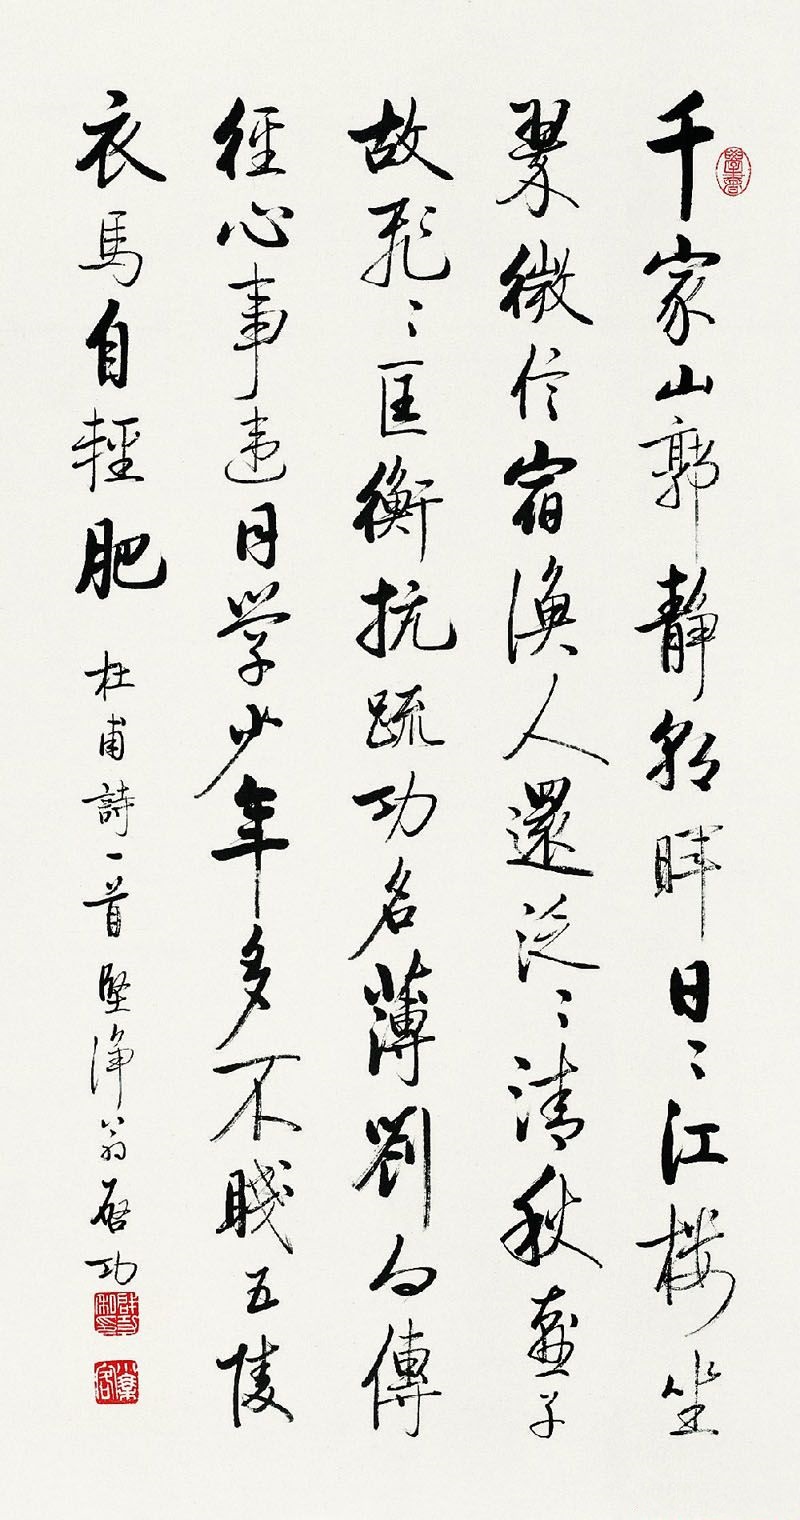 千家山郭靜朝暉日〻江樓坐
翠微信宿漁人還泛〻清秋燕子
故飛〻匡衡抗疏功名薄劉向傳
經心事違同學少年多不賤五陵
衣馬自輕肥 杜甫詩一首 堅淨翁启功